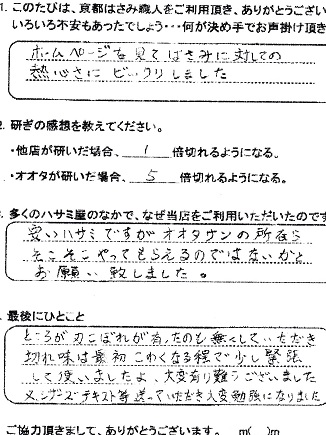 1. このたびは、京都はさみ職人をご利用頂き、ありがとうござい
いろいろ不安もあったでしょう・・・何が決め手でお声掛け頂き
ホームページを見てはさみに対しての
熱心さに ビックリしました
2. 研ぎの感想を教えてください。
・他店が研いだ場合、 1 倍切れるようになる。
・オオタが研いだ場合、 5 倍切れるようになる。
多くのハサミ屋のなかで、なぜ当店をご利用いただいたのです
安いハサミですがオオタサンの所なら
そこそこやってもらえるのではないかと
お願い致しました。
最後にひとこと
ところが刃こぼれが有ったのも無くしていただき
切れ味は最初こわくなる程で少し緊張
して使いましたよ、大変有り難うございました
メンテナンステキスト等送っていただき大変勉強になりました
ご協力頂きまして、ありがとうございます。 m( )m